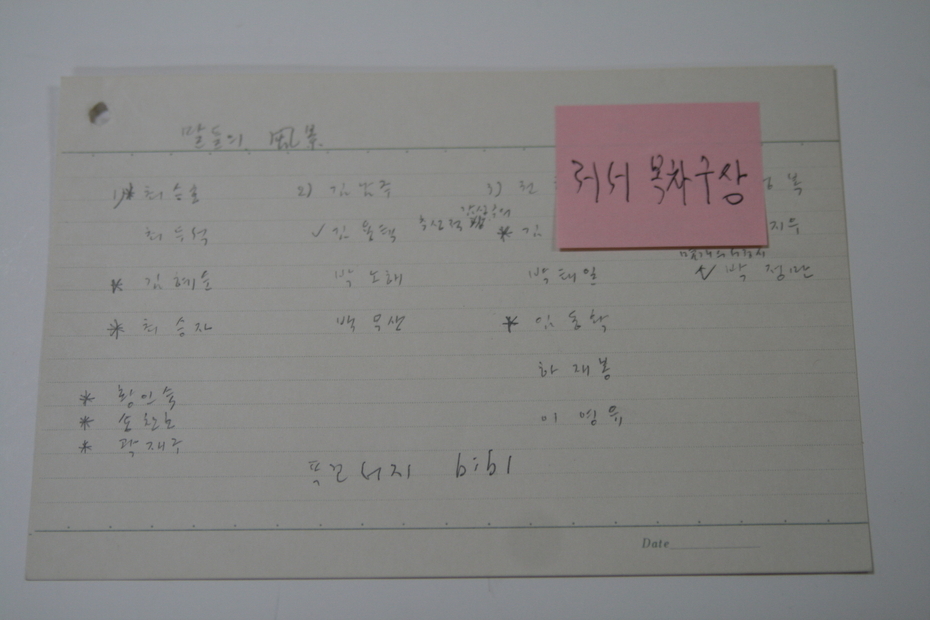 말들의 風景
저서 목차구상
1) * 최승호 2) 김남주 3) 복
최두석 ✓ 김용택 * 김 지우
* 김혜순 박노해 박태일 ✓ 박정만
* 최승자 백무산 * 임동확
하재봉
* 황인숙
* 송찬호 이영유
* 곽재구
서지 bibl
Date